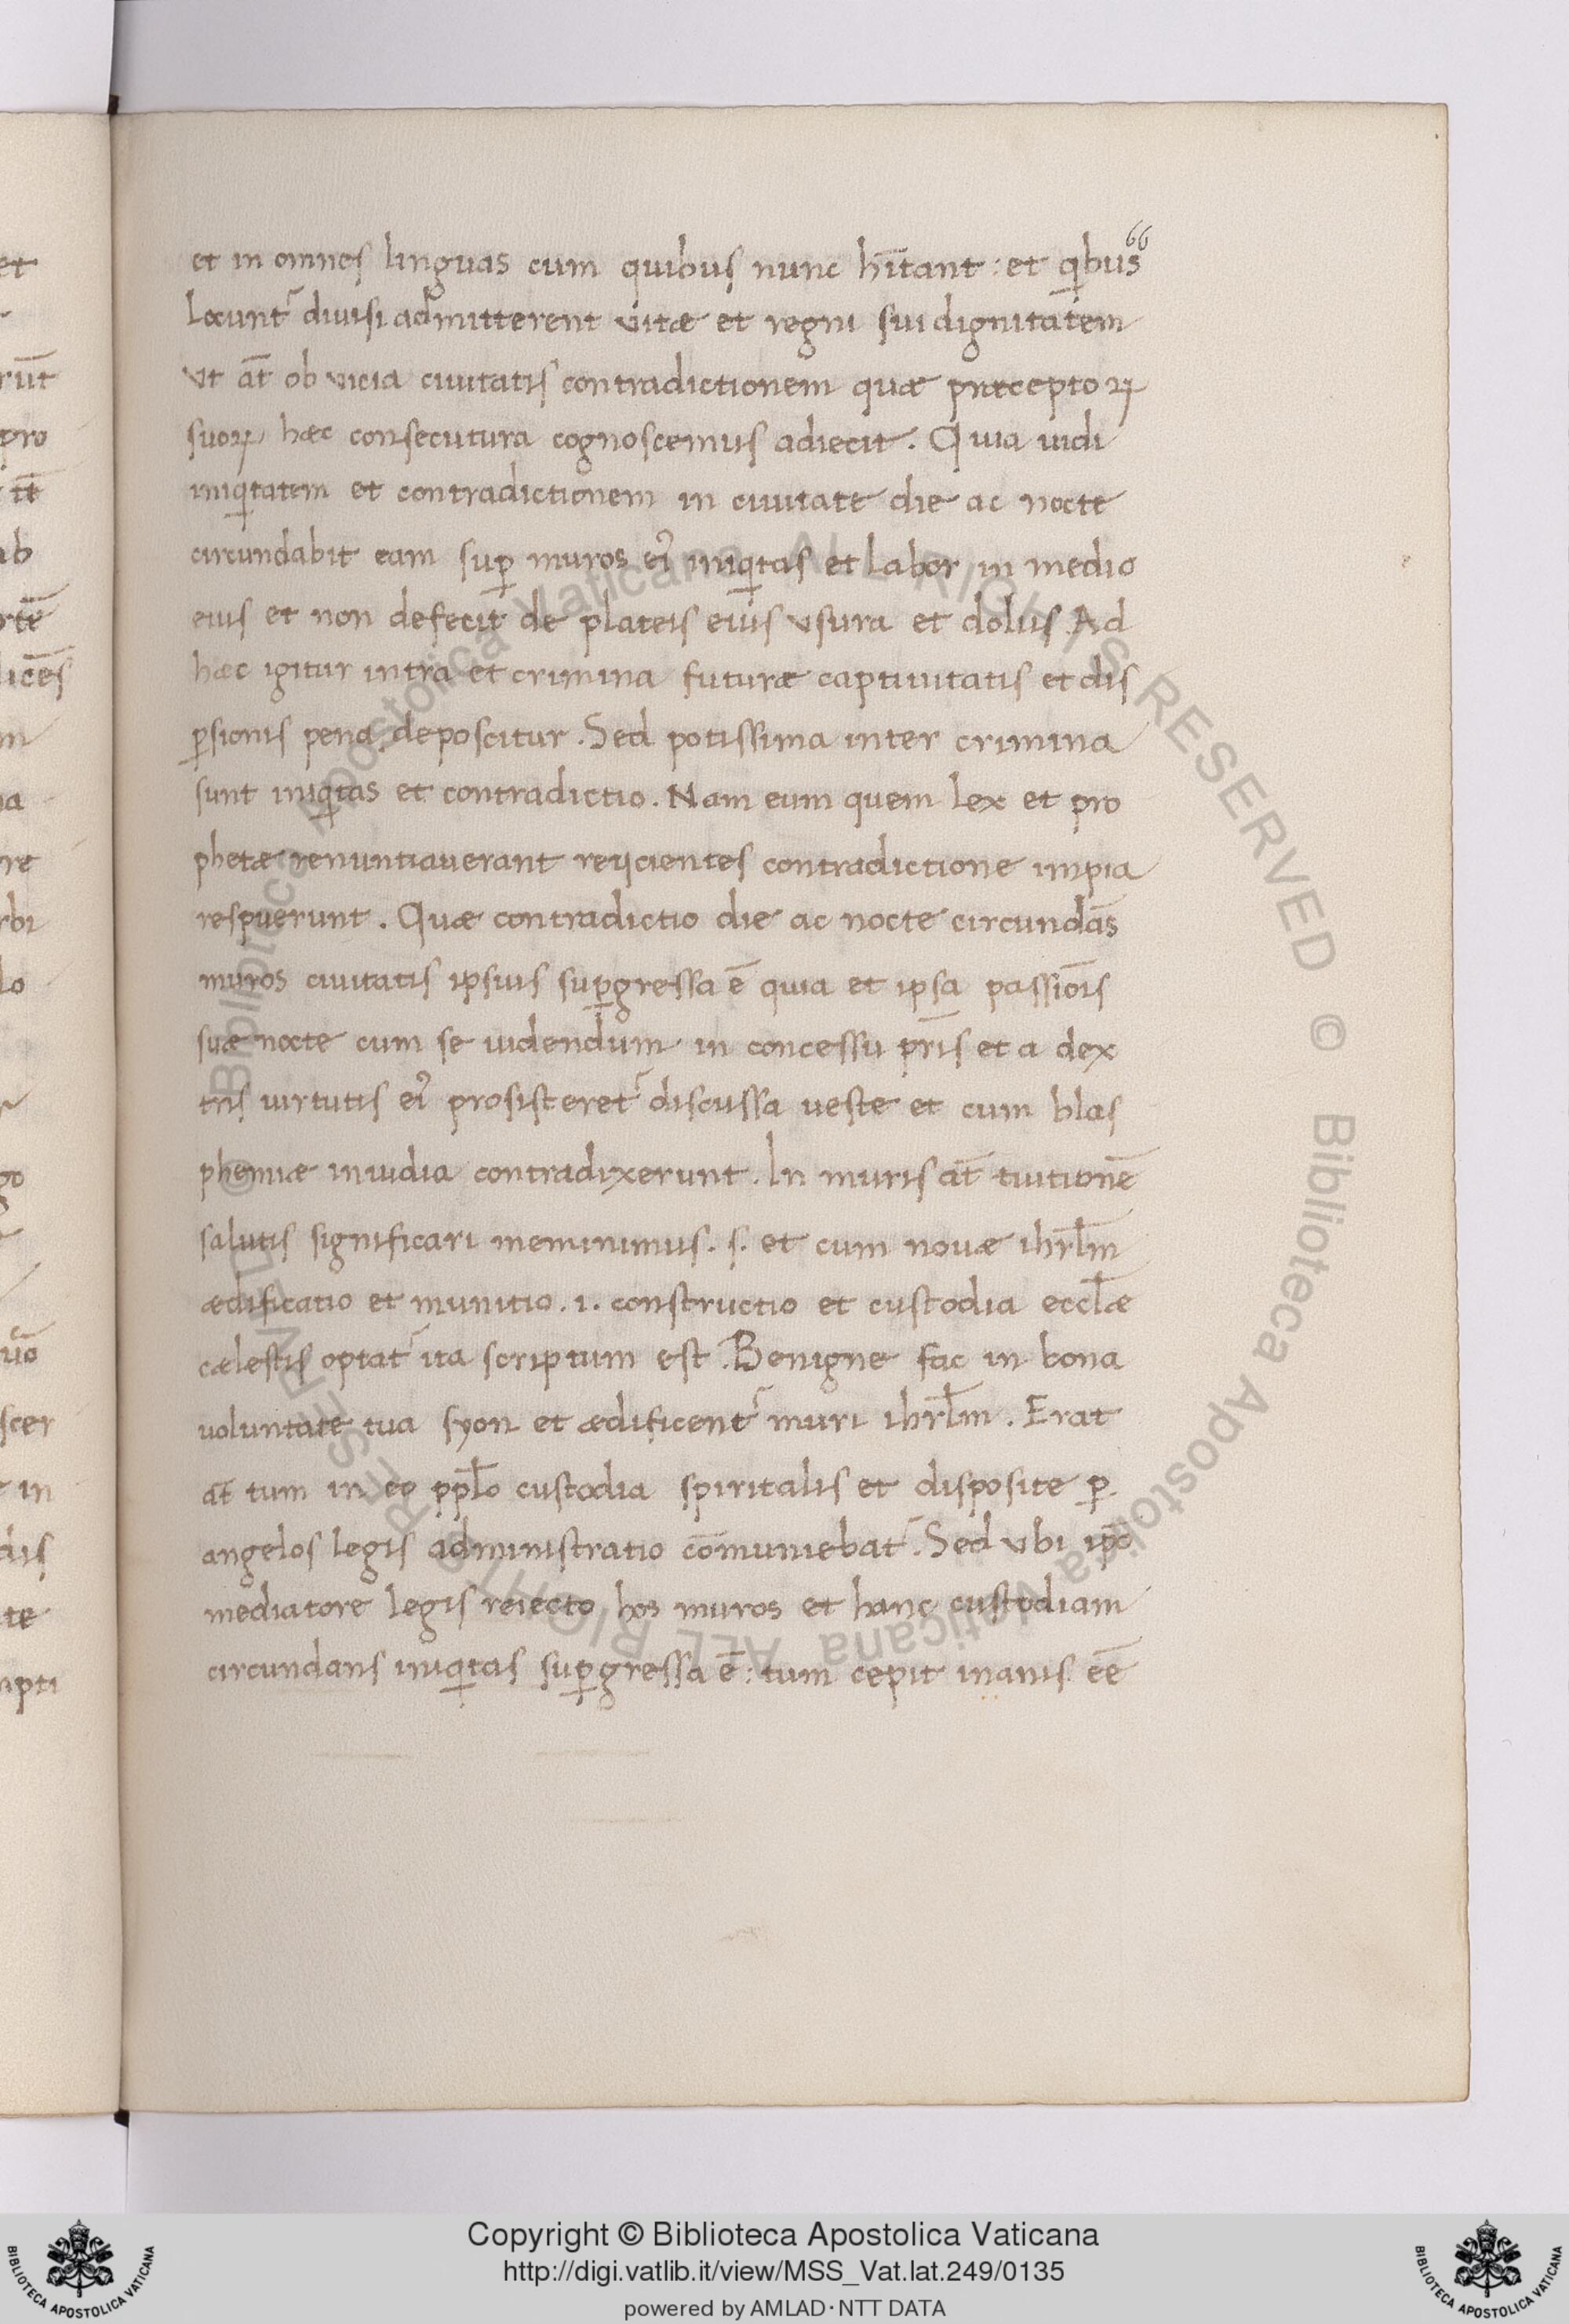 66
et in omnes linguas cum quibus nunc hītant : et qibus
Locuntr̄ diuisi admitterent vitæ et regni sui dignitatem
vt āt ob vicia ciuitatis contradictionem quæ præceptoꝝ
suoꝝ hæc consecutura cognoscemus adiecit . Quia uidi
iniqitatem et contradictionem in ciuitate die ac nocte
circundabit eam suꝑ muros ei᾽ iniqitas et labor in medio
eius et non defecit de plateis eius vsura et dolus . Ad
hæc igitur intra et crimina futuræ captiuitatis et dis
ꝑsionis pena deposcitur . Sed potissima inter crimina
sunt iniqitas et contradictio . Nam eum quem lex et pro
phetæ renuntiauerant reijcientes contradictione impia
respuerunt . Quæ contradictio die ac nocte circundās
muros ciuitatis ipsius suꝑgressa ē quia et ipsa passiōis
suæ nocte cum se uidendum in concessu pr̄is et a dex
tris uirtutis ei᾽ prosisteretr̄ discussa ueste et cum blas
phemiæ inuidia contradixerunt . In muris āt tuitionē
salutis significari meminimus . s. et cum nouæ ihrl̄m
ædificatio et munitio . i. constructio et custodia eccl̄æ
cælestis optatr̄ ita scriptum est . Benigne fac in bona
uoluntate tua syon et ædificentr̄ muri ihrl̄m . Erat
āt tum in eo ppl̄o custodia spiritalis et disposite ꝑ
angelos legis administratio cōmuniebatr̄ . Sed vbi ip̄o
mediatore legis reiecto hos muros et hanc custodiam
circundans iniqitas suꝑgressa ē : tum cepit inanis eē
et
rūt
pro
tt̄
ab
rtē
licēs
re
rbi
lo
go
uō
scer
in
te
mpti
Biblioteca Apostolica Vaticana ALL RIGHTS RESERVED © Biblioteca Apostolica Vaticana ALL RIGHTS RESERVED ©
Copyright © Biblioteca Apostolica Vaticana
http://digi.vatlib.it/view/MSS_Vat.lat.249/0135
powered by AMLAD·NTT DATA
BIBLIOTECA APOSTOLICA VATICANA
BIBLIOTECA APOSTOLICA VATICANA